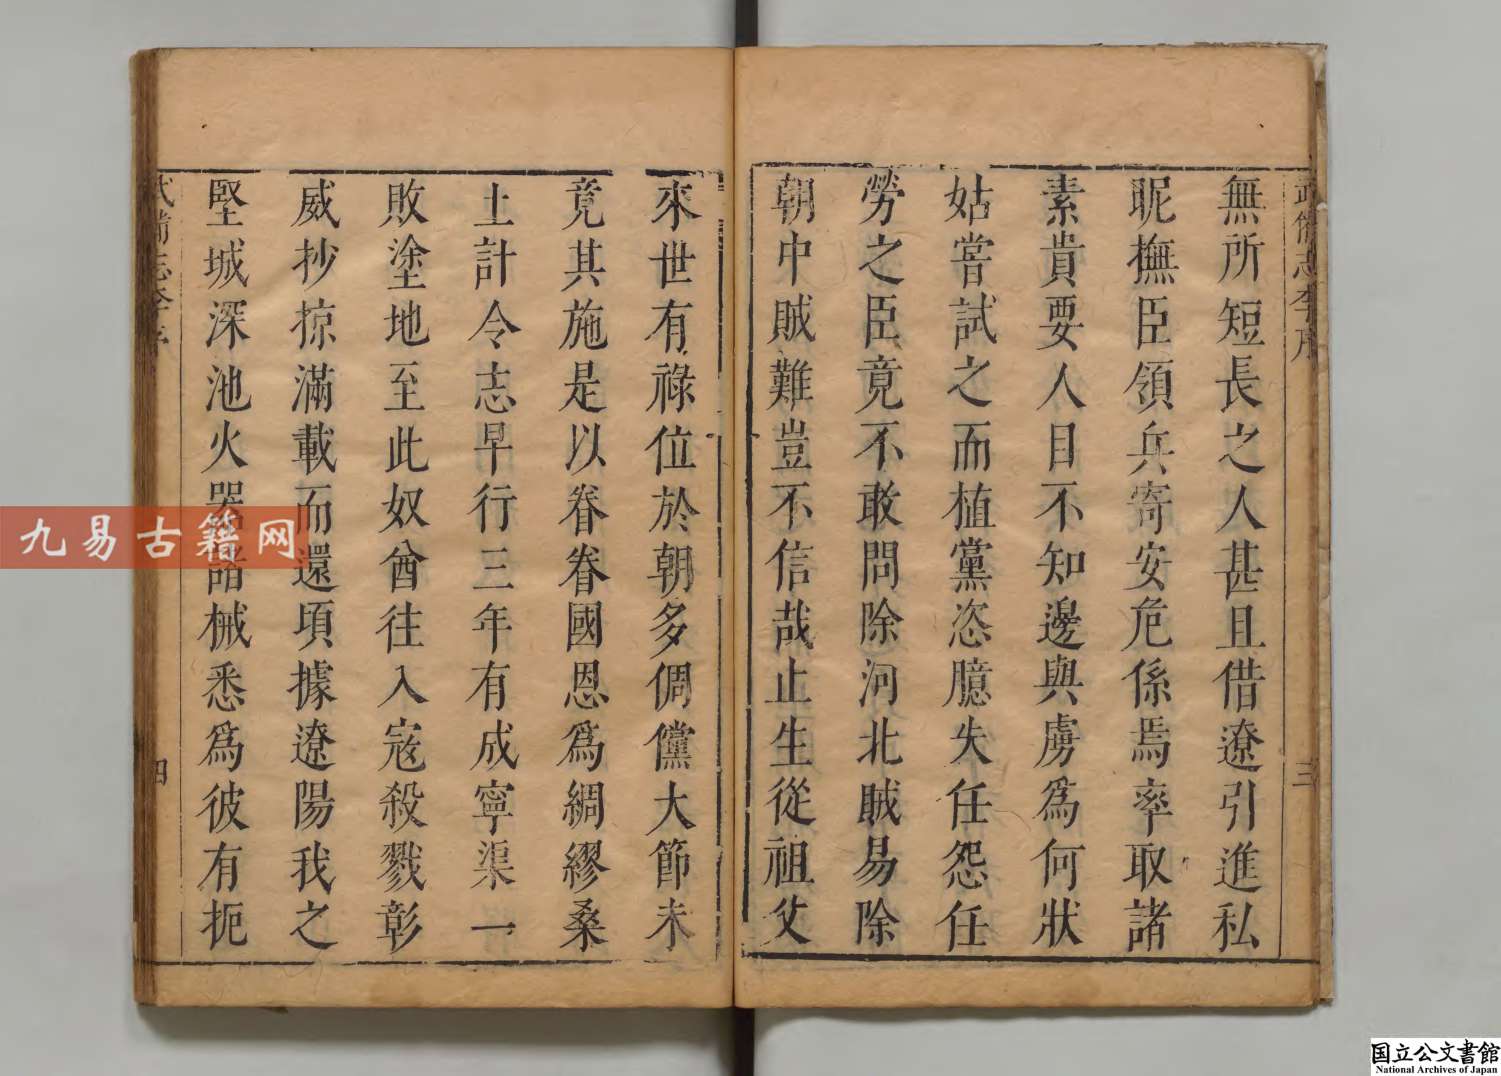 武備志李序
三
無所短長之人甚且借遼引進私
昵撫臣領兵寄安危係焉率取諸
素貴要人目不知邊與虜為何狀
姑嘗試之而植黨恣臆失任怨任
勞之臣竟不敢問除河北賊易除
朝中賊難豈不信哉止生從祖父
來世有祿位於朝多倜儻大節未
竟其施是以眷眷國恩為綢繆桑
土計令志早行三年有成寧渠一
敗塗地至此奴酋往入寇殺戮彰
威抄掠滿載而還頃據遼陽我之
堅城深池火器諸械悉為彼有扼
武備志李序
四
九易古籍网
国立公文書館
National Archives of Japan